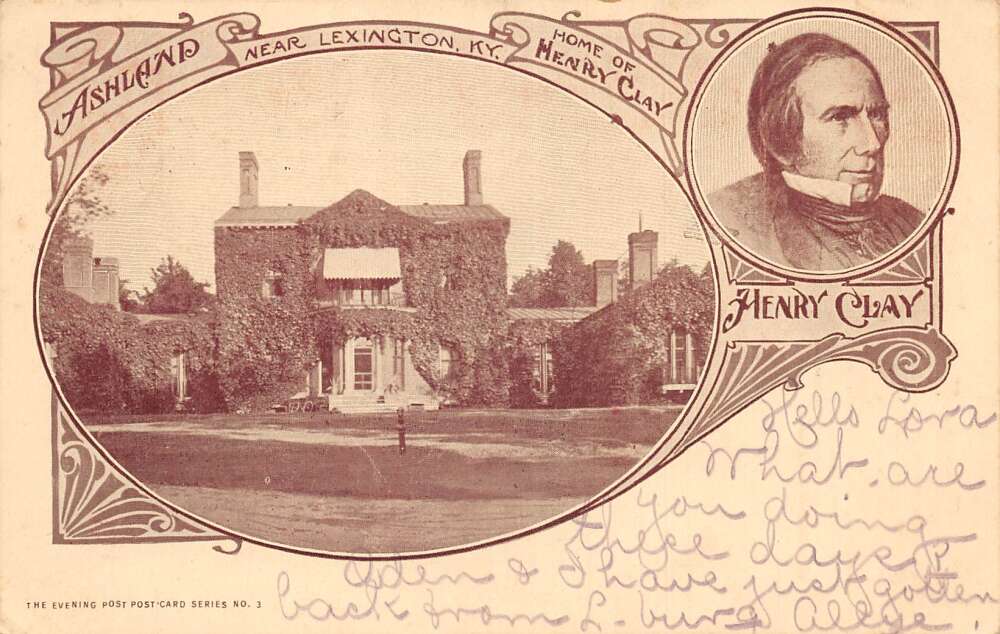 ASHLAND
NEAR LEXINGTON, KY.
HOME OF
HENRY CLAY
HENRY CLAY
Hello Lova
What are
you doing
these days?
Oden & I have just gotten
back from L-burg Allye.
THE EVENING POST POST CARD SERIES NO. 3